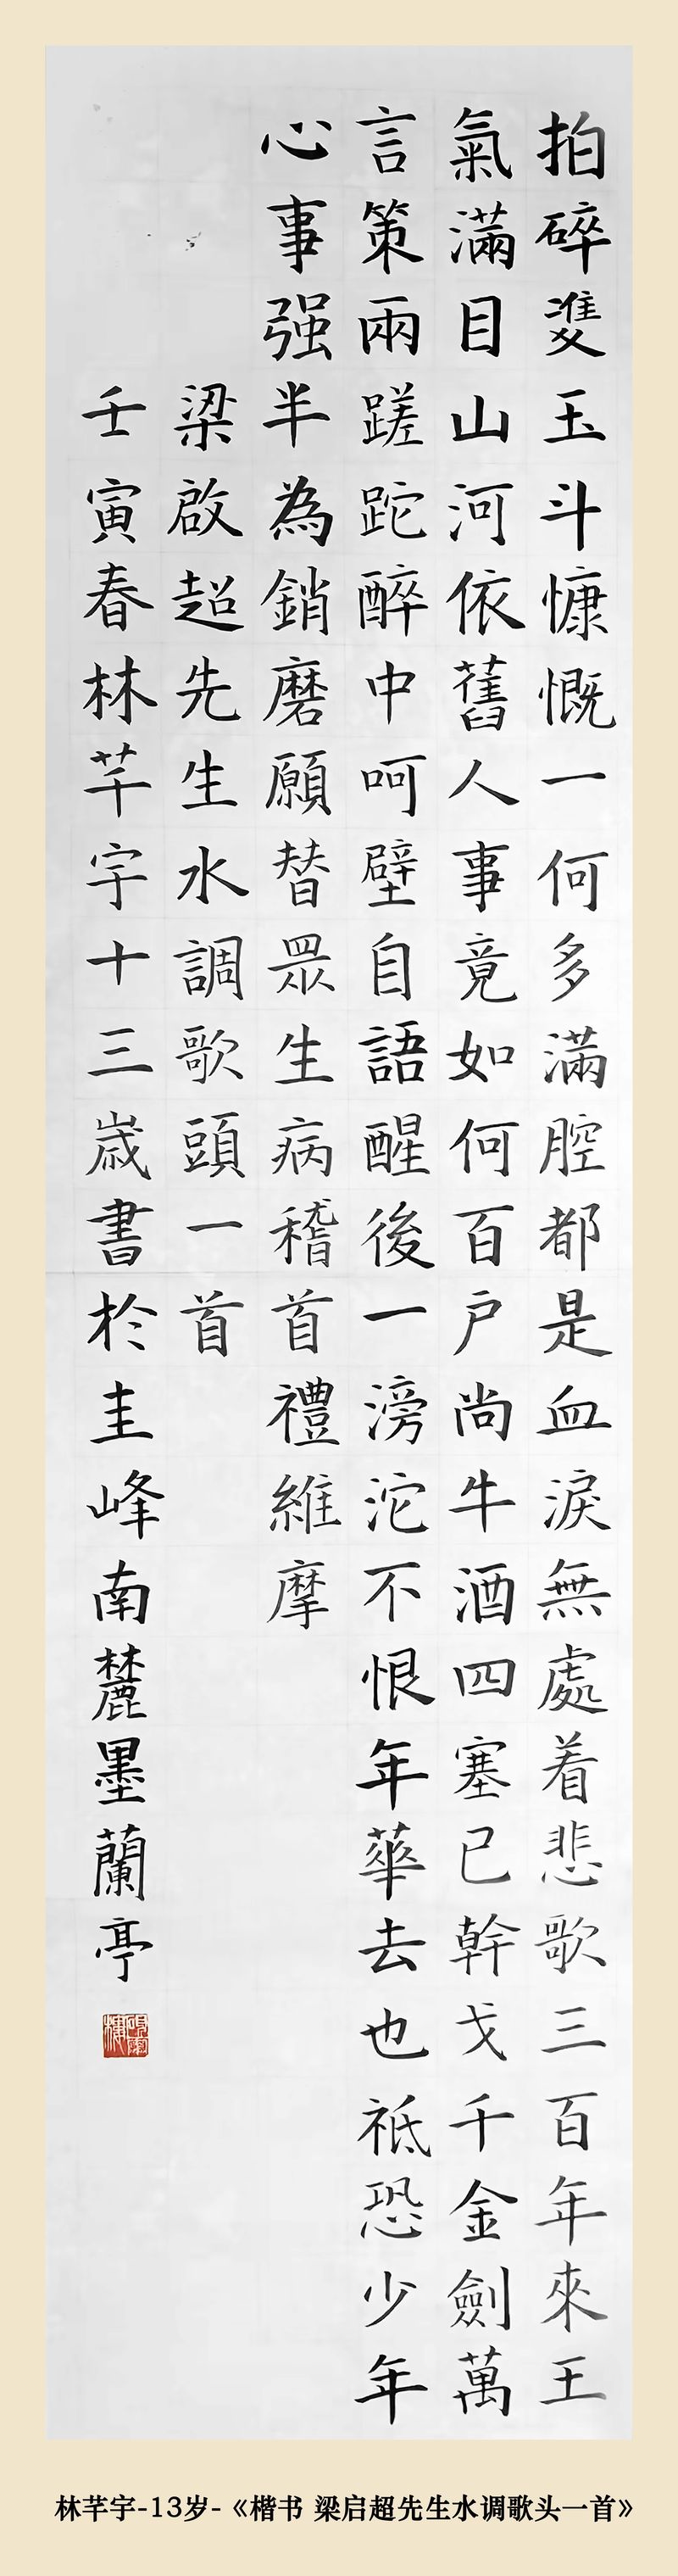 拍碎雙玉斗慷慨一何多滿腔都是血淚無處着悲歌三百年來王
氣滿目山河依舊人事竟如何百戶尚牛酒四塞已幹戈千金劍萬
言策兩蹉跎醉中呵壁自語醒後一滂沱不恨年華去也祗恐少年
心事强半為銷磨願替眾生病稽首禮維摩
梁啟超先生水調歌頭一首
壬寅春林芊宇十三歲書於圭峰南麓墨蘭亭
林芊宇-13岁-《楷书 梁启超先生水调歌头一首》